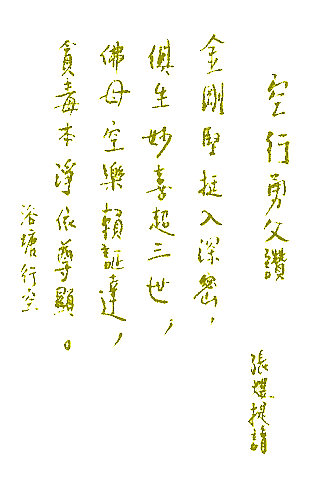 空行勇父讚
張煤提請
金剛堅挺入深密，
俱生妙喜超三世，
佛母空樂賴証達，
貪毒本淨依尊顯。
浴塘行空